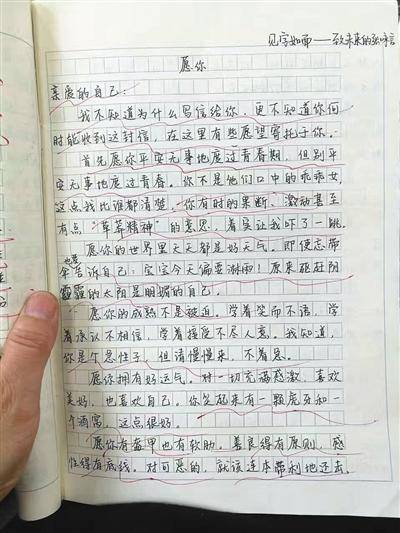 见字如面——致未来的张
愿你
亲爱的自己：
我不知道为什么写信给你，更不知道你何
时能收到这封信，在这里有些愿望寄托于你。
首先愿你平安无事地度过青春期，但别平
安无事地度过青春。你不是他们口中的乖乖女，
这点我比谁都清楚。你有时的果断、激动甚至
有点“草莽精神”的意思，着实让我吓了一跳。
愿你的世界里天天都是好天气。即便忘带
也要
伞告诉自己：宝宝今天偏要淋雨！原来驱赶阴
霾的太阳是明媚的自己。
愿你的成熟不是被迫。学着笑而不语，学
着承认不相信，学着接受不尽人意。我知道，
你是个急性子，但请慢慢来，不着急。
愿你拥有好运气。对一切充满感激，喜欢
美好，也喜欢自己。你笑起来有一颗虎牙和一
个酒窝，这点很好。
愿你有盔甲也有软肋。善良得有原则，感
性得有底线。对可恶的，就该连本带利地还击。